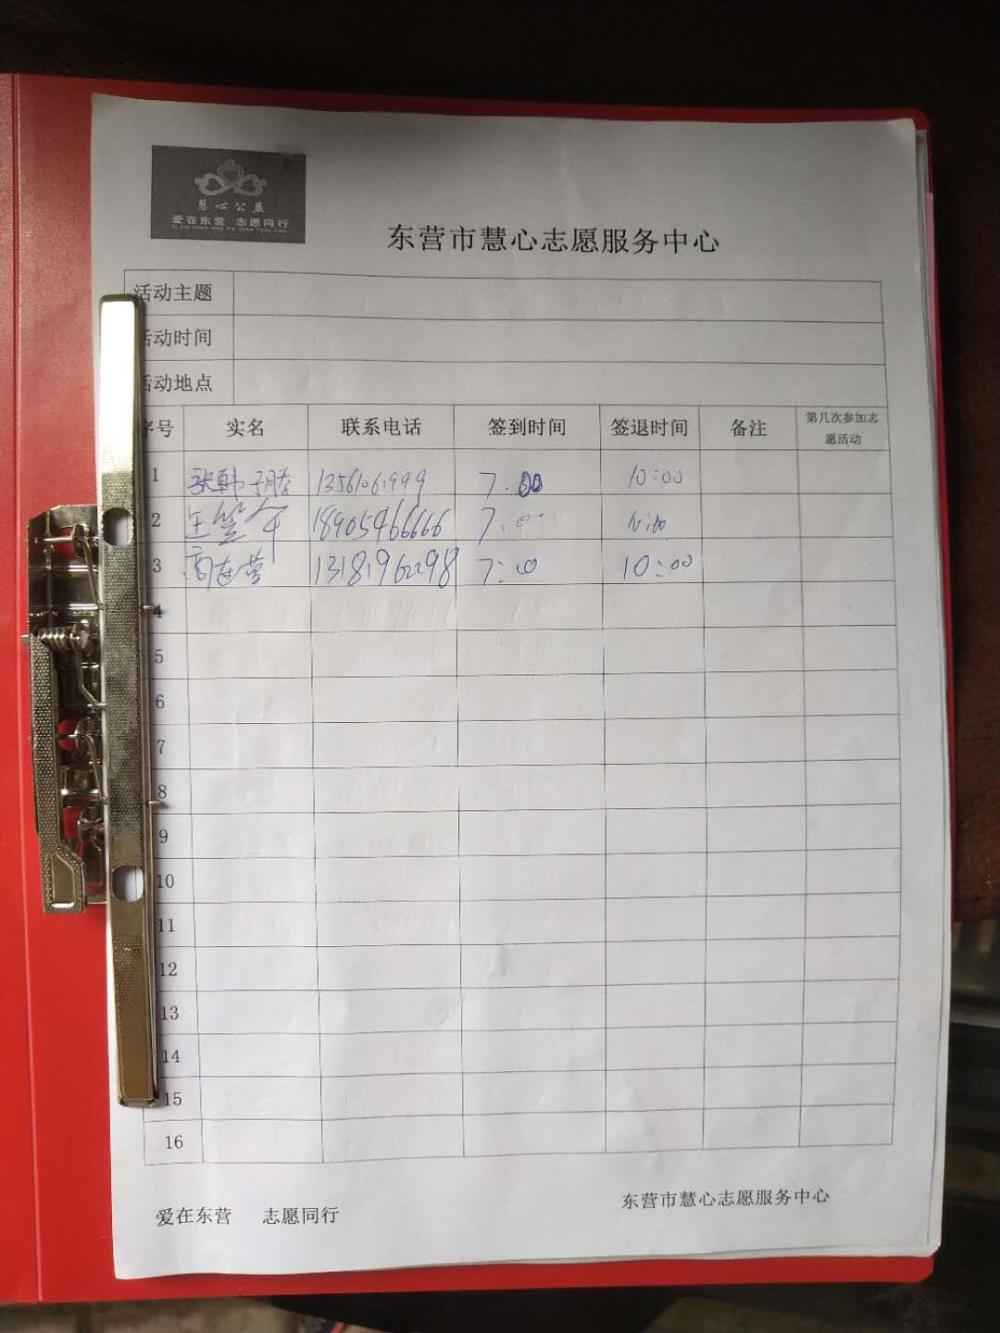 慧心公益
爱在东营 志愿同行
东营市慧心志愿服务中心
活动主题
活动时间
活动地点
序号 实名 联系电话 签到时间 签退时间 备注 第几次参加志愿活动
1 张韩子腾 7:00 10:00
2 18905466666 7:00
3 13181962298 7:00 10:00
4
5
6
7
8
9
10
11
12
13
14
15
16
爱在东营 志愿同行 东营市慧心志愿服务中心